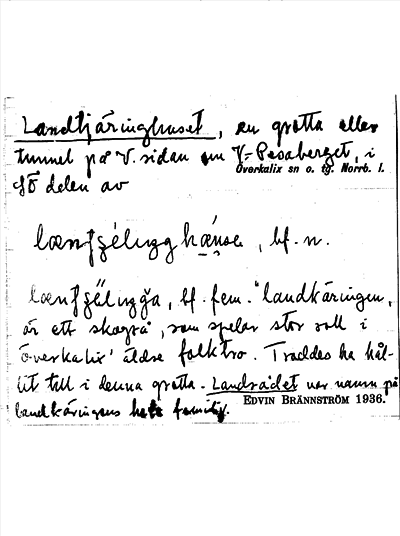 Landtjäringhuset, en grotta eller
tunnel på V. sidan om V-Pesaberget, i
Överkalix sn o. tg. Norrb. l.
SÖ delen av
bf. n.
bf. fem. "landkäringen,
är ett skogsrå, som spelar stor roll i
Överkalix' äldre folktro. Troddes ha hål-
lit till i denna grotta. Landrådet var namn på
landkäringens hela familj.
EDVIN BRÄNNSTRÖM 1936.